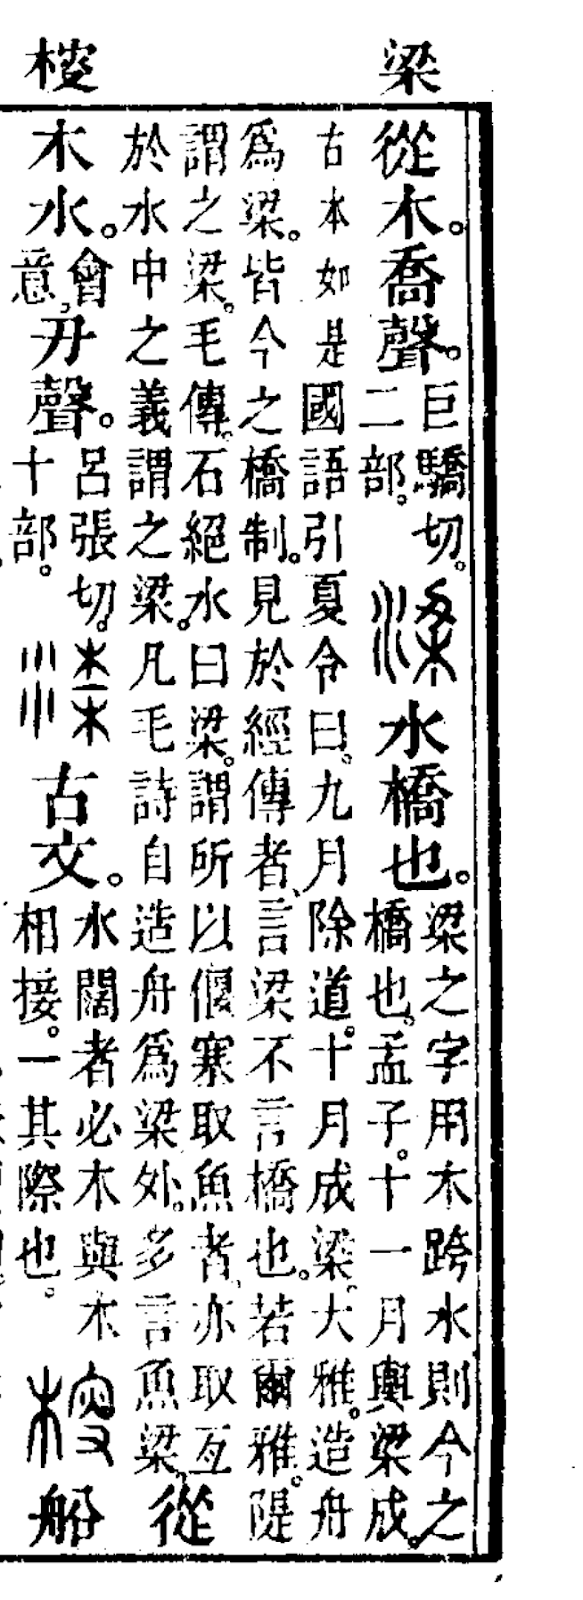 梁
從木。喬聲。巨驕切。二部。梁水橋也。梁之字用木跨水則今之橋也。孟子。十一月輿梁成。
古本如是國語引夏令曰。九月除道。十月成梁。大雅。造舟
爲梁。皆今之橋制。見於經傳者、言梁不言橋也。若爾雅。隄
謂之梁。毛傳。石絕水曰梁。謂所以偃塞取魚者、亦取亙
於水中之義謂之梁。凡毛詩自造舟爲梁處。多言魚梁。從
㮴
木水。會意。刅聲。呂張切。十部。古文。水闊者必木與木相接。一其際也。㮴船